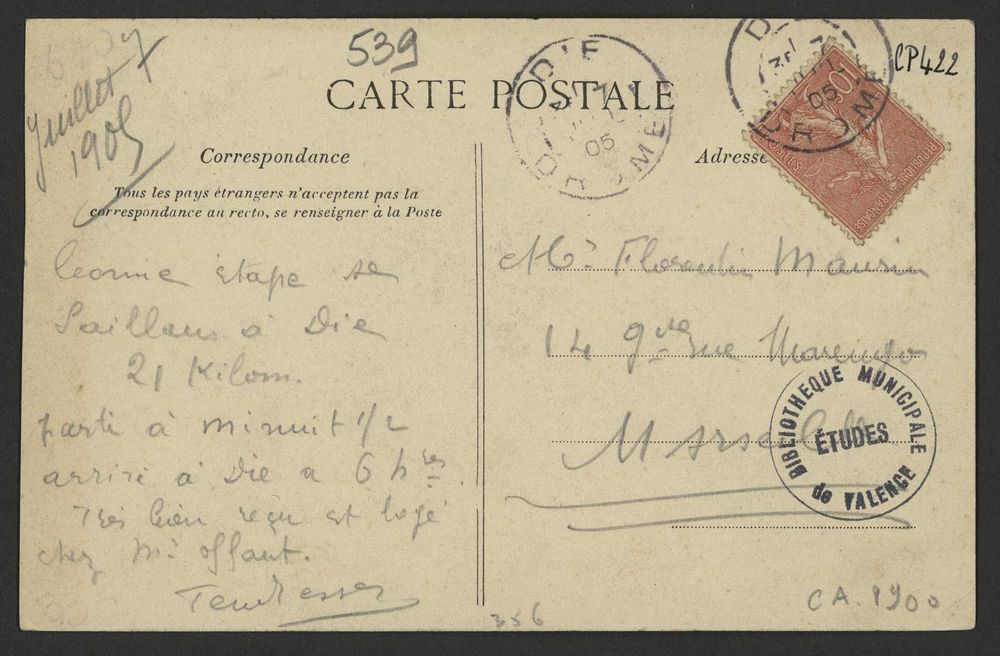 Juillet
1905
539
CP422
CARTE POSTALE
Correspondance
Adresse
Tous les pays étrangers n'acceptent pas la
correspondance au recto, se renseigner à la Poste
DIE
05
DROME
DIE
05
DROME
10
REPUBLIQUE FRANÇAISE
étape de
Saillans à Die
21 Kilom.
parti à minuit 1/2
arrivé à Die a 6 hres
Très bien reçu et logé
chez Mr offant.
Tendresses
Mr Florentin Maurin
14 gde rue Marengo
Marseille
BIBLIOTHEQUE MUNICIPALE
ÉTUDES
de VALENCE
356
CA. 1900